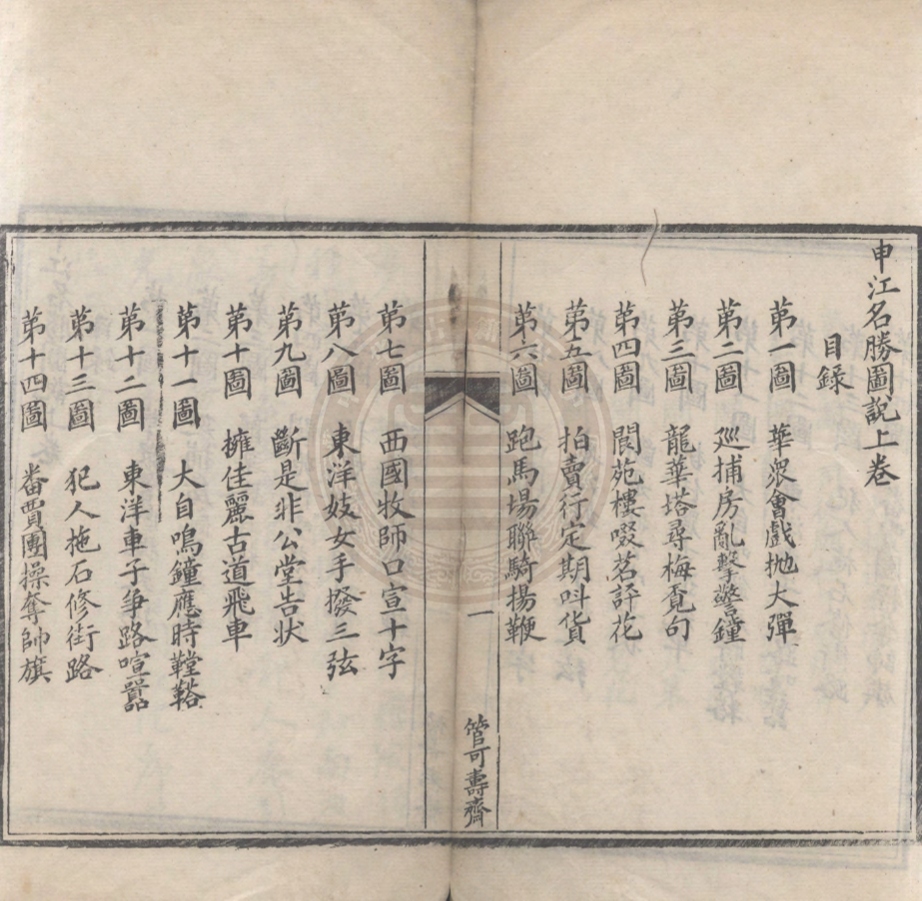 申江名勝圖說上卷
目錄
第一圖 華眾會戲拋大彈
第二圖 巡捕房亂擊警鐘
第三圖 龍華塔尋梅覓句
第四圖 閬苑樓啜茗評花
第五圖 拍賣行定期呌貨
第六圖 跑馬場聯騎揚鞭
一
管可壽齋
第七圖 西國牧師口宣十字
第八圖 東洋妓女手撥三弦
第九圖 斷是非公堂告狀
第十圖 擁佳麗古道飛車
第十一圖 大自鳴鐘應時鞺鞳
第十二圖 東洋車子爭路喧囂
第十三圖 犯人拖石修街路
第十四圖 番賈團操奪帥旗